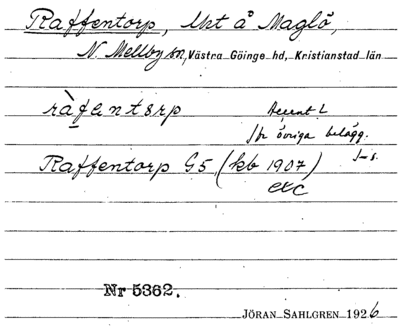 Raffentorp, lht å Maglö,
N. Mellby sn, Västra Göinge hd, Kristianstad län
ràfentorp Accent 1
jfr övriga belägg.
J-s.
Raffentorp G5 (kb 1907)
etc
Nr 5362.
JÖRAN SAHLGREN 1926